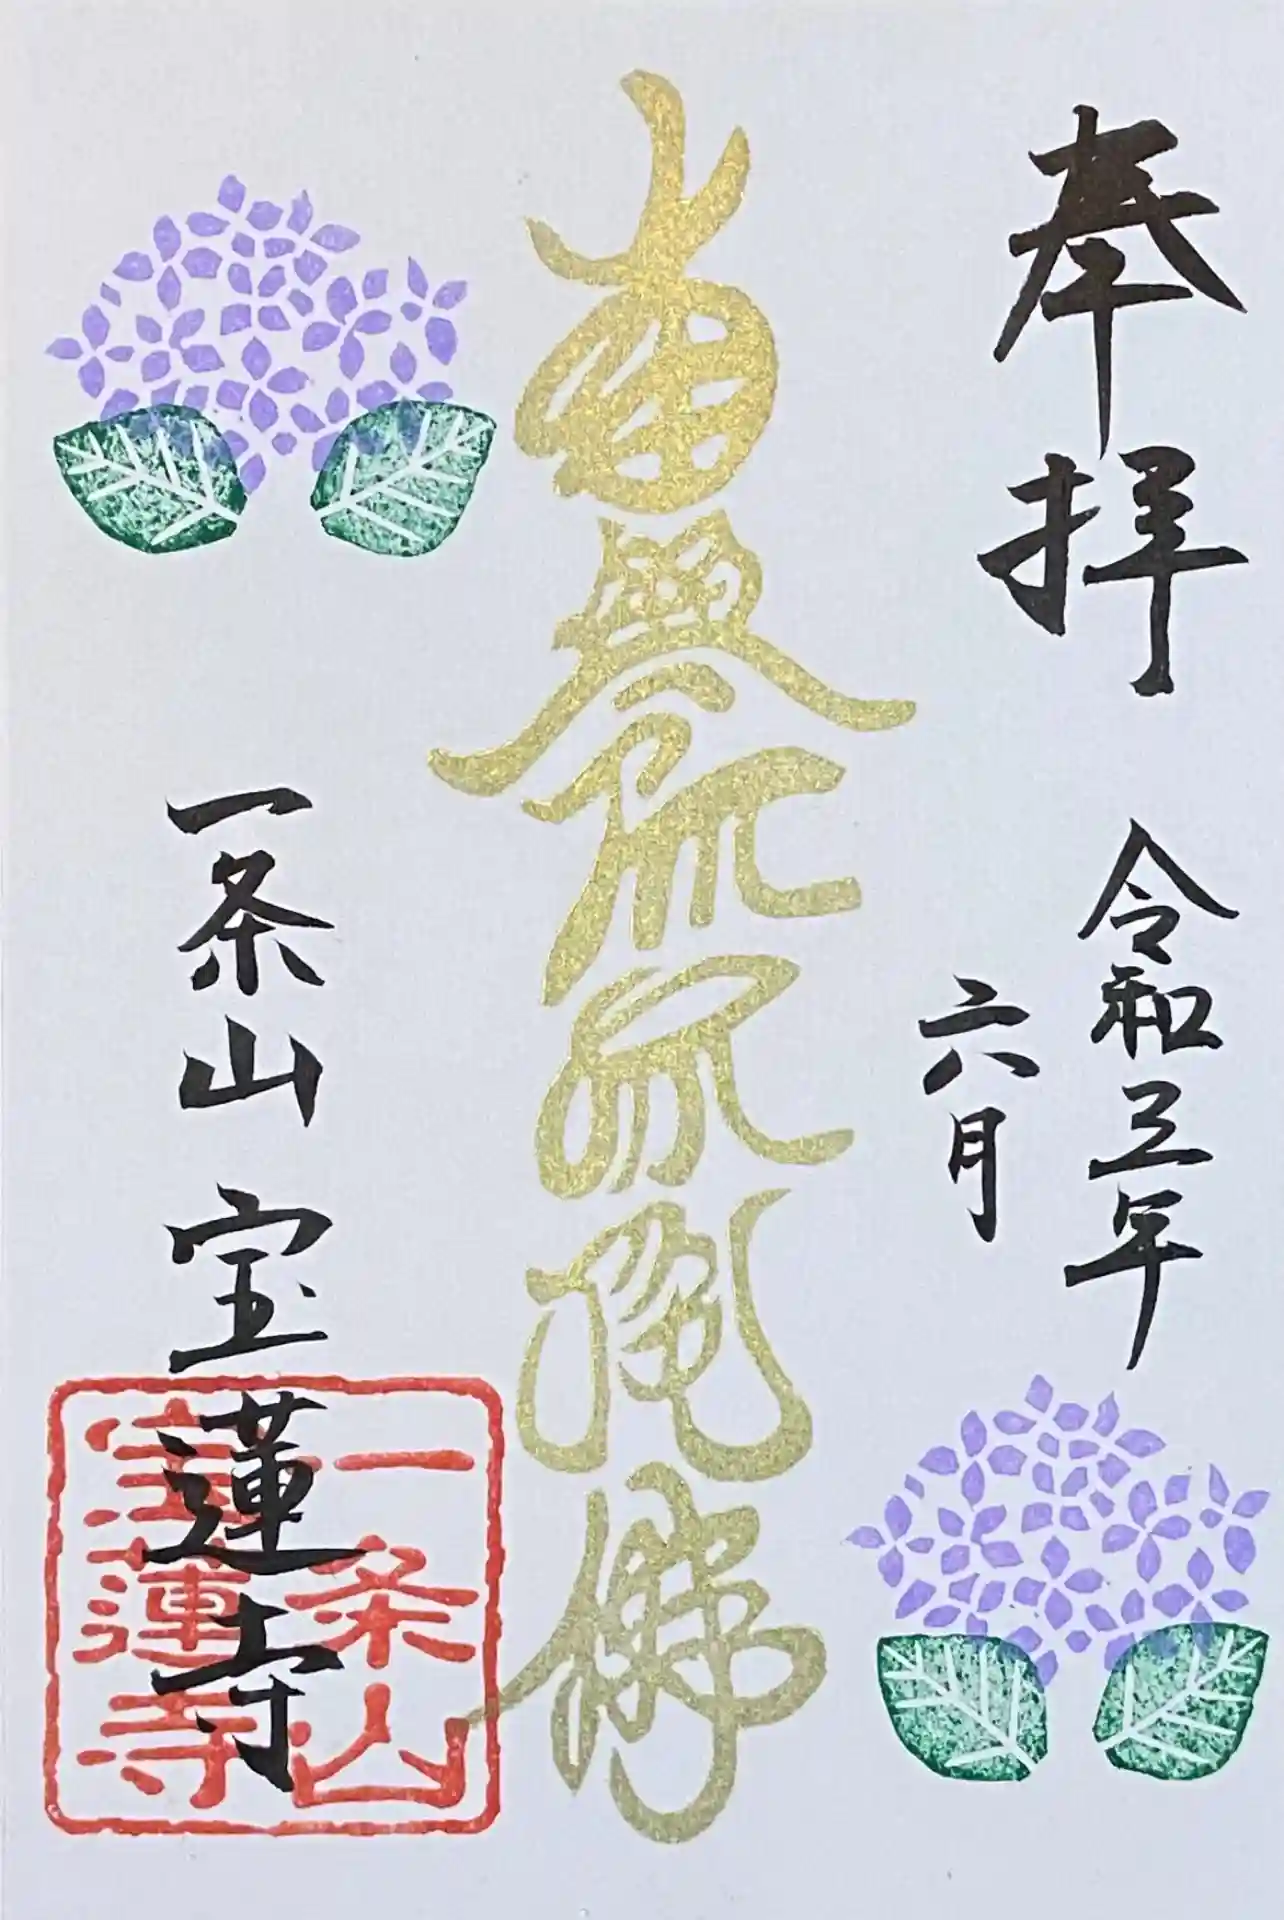 奉拝
令和五年
六月
南無阿弥陀佛
一条山 宝蓮寺
一条山
宝蓮寺